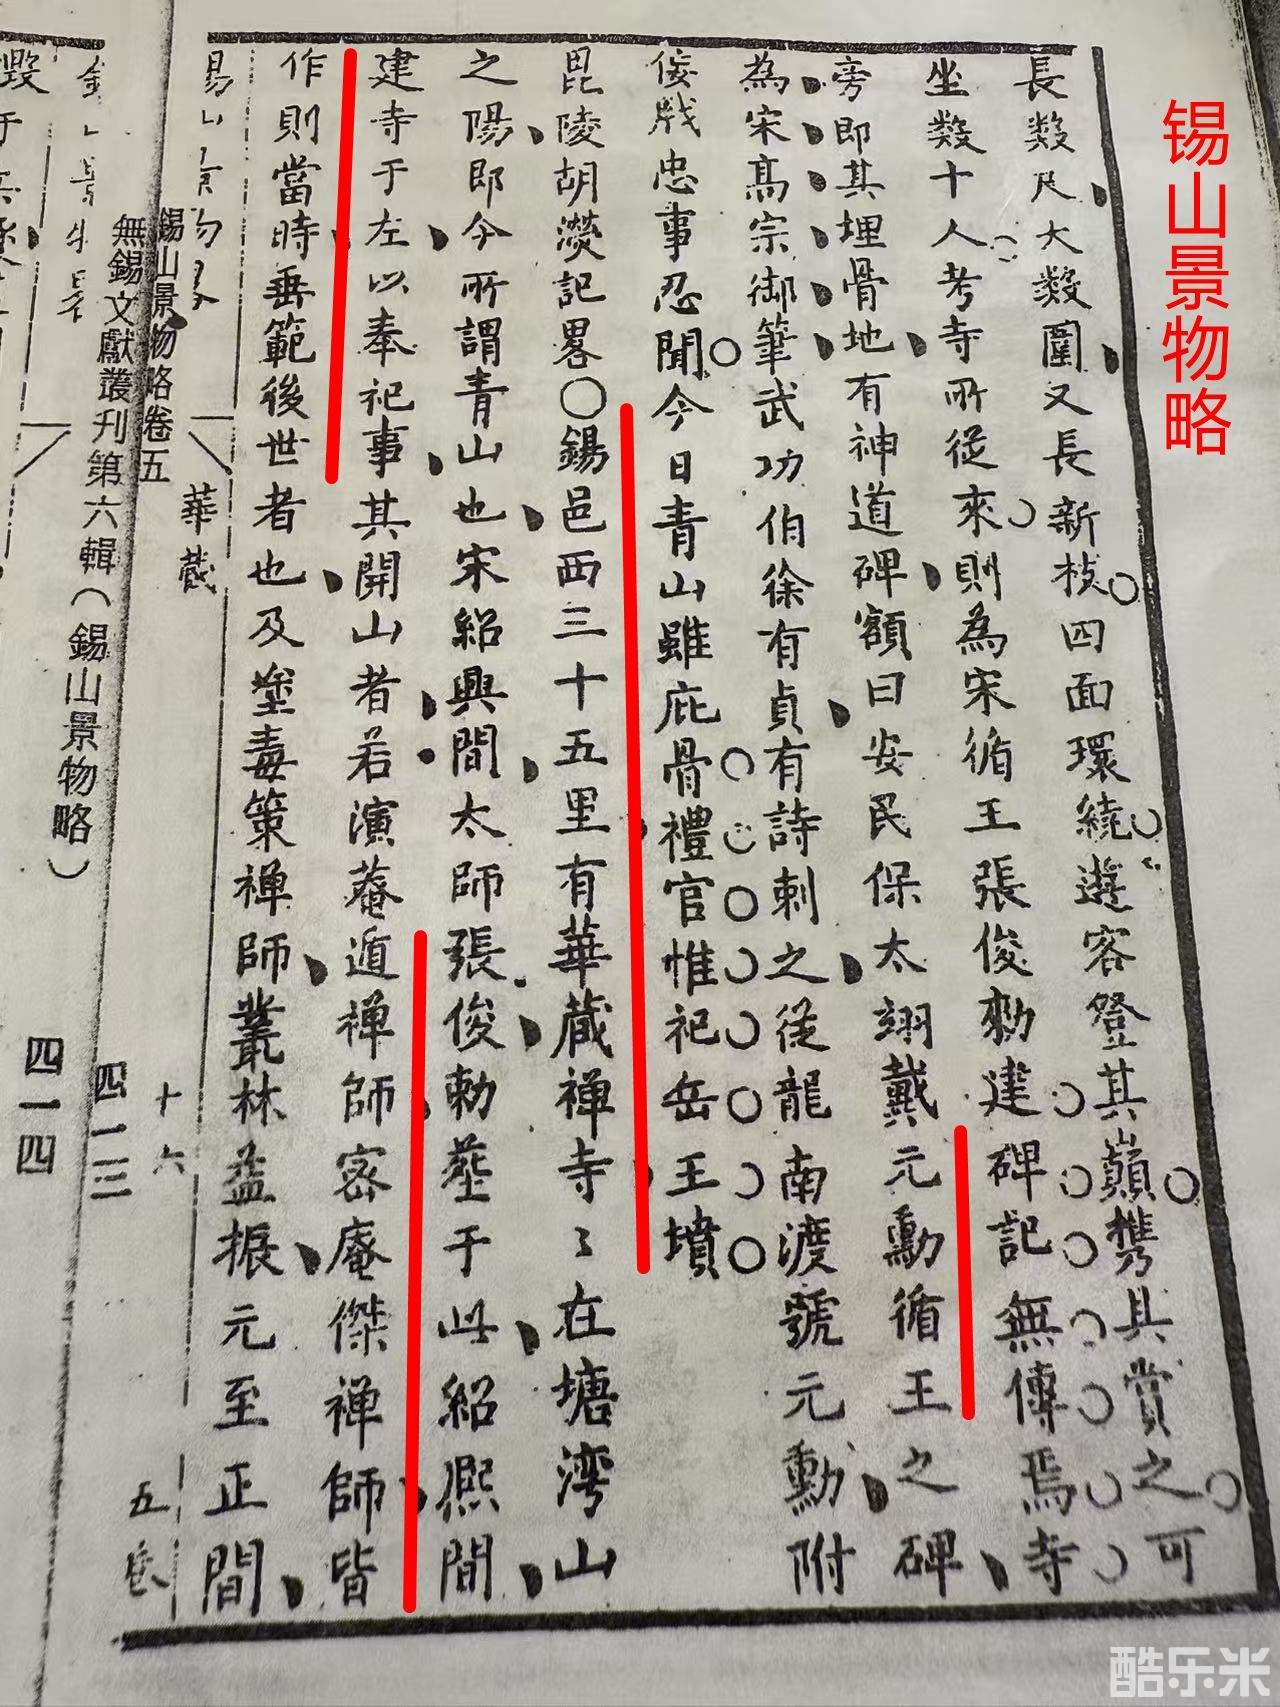 锡山景物略
長数尺大数圍又長新枝四面環繞遊客登其巔携具賞之可
坐数十人考寺所從來則為宋循王張俊勅建碑記無傳焉寺
旁即其埋骨地有神道碑額曰安民保太翊戴元勳循王之碑
為宋高宗御筆武功伯徐有貞有詩刺之從龍南渡號元勳附
倿戕忠事忍聞今日青山雖庇骨禮官惟祀岳王墳
毘陵胡濙記畧〇錫邑西三十五里有華藏禅寺〻在塘湾山
之陽即今所謂青山也宋紹興間太師張俊勅塟于此紹熈間
建寺于左以奉祀事其開山者若演菴遁禅師密庵傑禅師皆
作則當時垂範後世者也及塗毒策禅師叢林益振元至正間
錫山景物略卷五
華藏
十六
五卷
無錫文獻叢刊第六輯（錫山景物略）
四一三
四一四
酷乐米